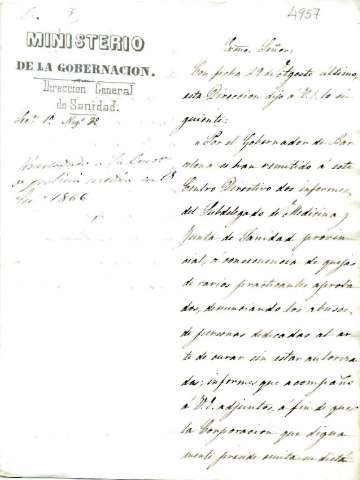 4957
MINISTERIO
DE LA GOBERNACION.
Direccion General
de Sanidad.
Ilmo. Señor;
Con fecha 29 de Agosto último,
esta Direccion dijo á V.I. lo si-
guiente:
"Por el Gobernador de Bar-
celona se han remitido á este
Centro Directivo dos informes,
del Subdelegado de Medicina y
Junta de Sanidad provin-
cial, á consecuencia de quejas
de varios practicantes aproba-
dos, denunciando los abusos,
de personas dedicadas al ar-
te de curar sin estar autoriza-
das; informes que acompaño
á V.I. adjuntos, á fin de que
la Corporacion que digna-
mente preside emita su dictá-
1866